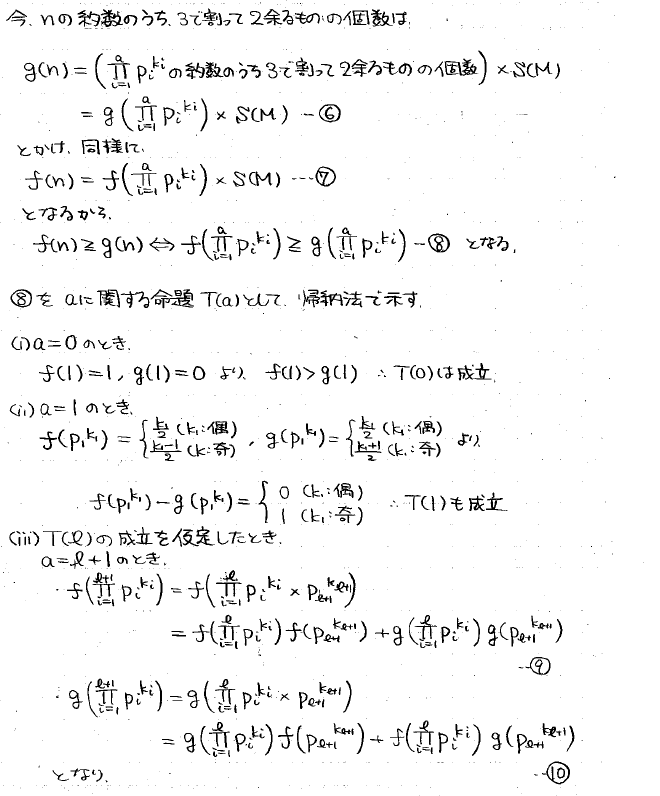 今、nの約数のうち、3で割って2余るものの個数は、
g(n) = (∏_{i=1}^{a} p_i^{k_i} の約数のうち3で割って2余るものの個数) × S(M)
= g(∏_{i=1}^{a} p_i^{k_i}) × S(M) ―⑥
とかけ、同様に、
f(n) = f(∏_{i=1}^{a} p_i^{k_i}) × S(M) ―⑦
となるから、
f(n) ≧ g(n) ⇔ f(∏_{i=1}^{a} p_i^{k_i}) ≧ g(∏_{i=1}^{a} p_i^{k_i}) ―⑧ となる。
⑧を aに関する命題 T(a)として、帰納法で示す。
(i) a=0 のとき、
f(1)=1, g(1)=0 より、 f(1)>g(1) ∴T(0)は成立
(ii) a=1 のとき、
f(p_1^{k_1}) = { k_1/2 (k_1:偶) (k_1-1)/2 (k:奇) , g(p_1^{k_1}) = { k_1/2 (k_1:偶) (k_1+1)/2 (k_1:奇) より
f(p_1^{k_1}) - g(p_1^{k_1}) = { 0 (k_1:偶) 1 (k_1:奇) ∴T(1)も成立
(iii) T(ℓ)の成立を仮定したとき、
a=ℓ+1のとき、
・f(∏_{i=1}^{ℓ+1} p_i^{k_i}) = f(∏_{i=1}^{ℓ} p_i^{k_i} × p_{ℓ+1}^{k_{ℓ+1}})
= f(∏_{i=1}^{ℓ} p_i^{k_i}) f(p_{ℓ+1}^{k_{ℓ+1}}) + g(∏_{i=1}^{ℓ} p_i^{k_i}) g(p_{ℓ+1}^{k_{ℓ+1}})
―⑨
・g(∏_{i=1}^{ℓ+1} p_i^{k_i}) = g(∏_{i=1}^{ℓ} p_i^{k_i} × p_{ℓ+1}^{k_{ℓ+1}})
= g(∏_{i=1}^{ℓ} p_i^{k_i}) f(p_{ℓ+1}^{k_{ℓ+1}}) + f(∏_{i=1}^{ℓ} p_i^{k_i}) g(p_{ℓ+1}^{k_{ℓ+1}})
となり、 ―⑩